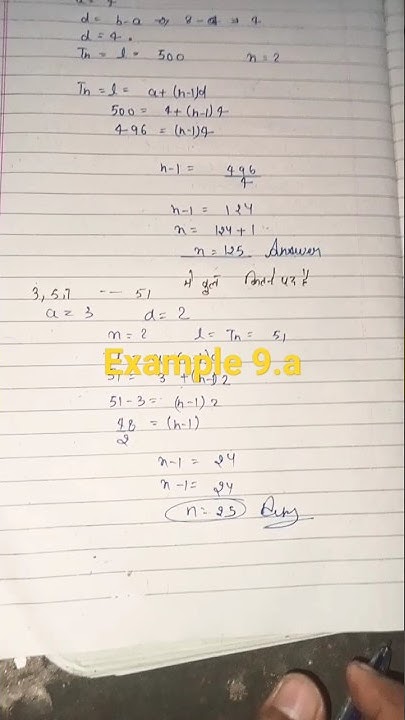 d = b-a ⇒ 8-4 ⇒ 4
d = 4.
Tn = l = 500 n = ?
Tn = l = a+(n-1)d
500 = 4+(n-1)4
496 = (n-1)4
n-1 = 496/4
n-1 = 124
n = 124+1
n = 125 Answer
3, 5, 7 --- 51 में कुल कितने पद है
a = 3 d = 2
n = ? l = Tn = 51
Example 9.a
51 = 3 +(n-1)2
51-3 = (n-1)2
48/2 = (n-1)
n-1 = 24
n-1 = 24
n = 25 Ans